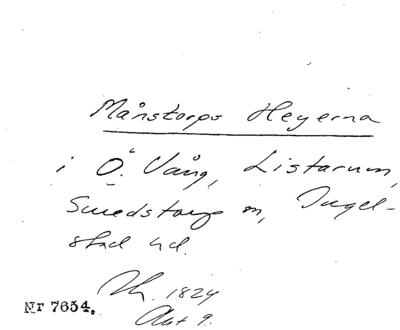 Månstorps Heyerna
i Ö. Vång, Listarum,
Smedstorps sn, Ingel-
stad hd.
1824
Akt 9.
Nr 7654.